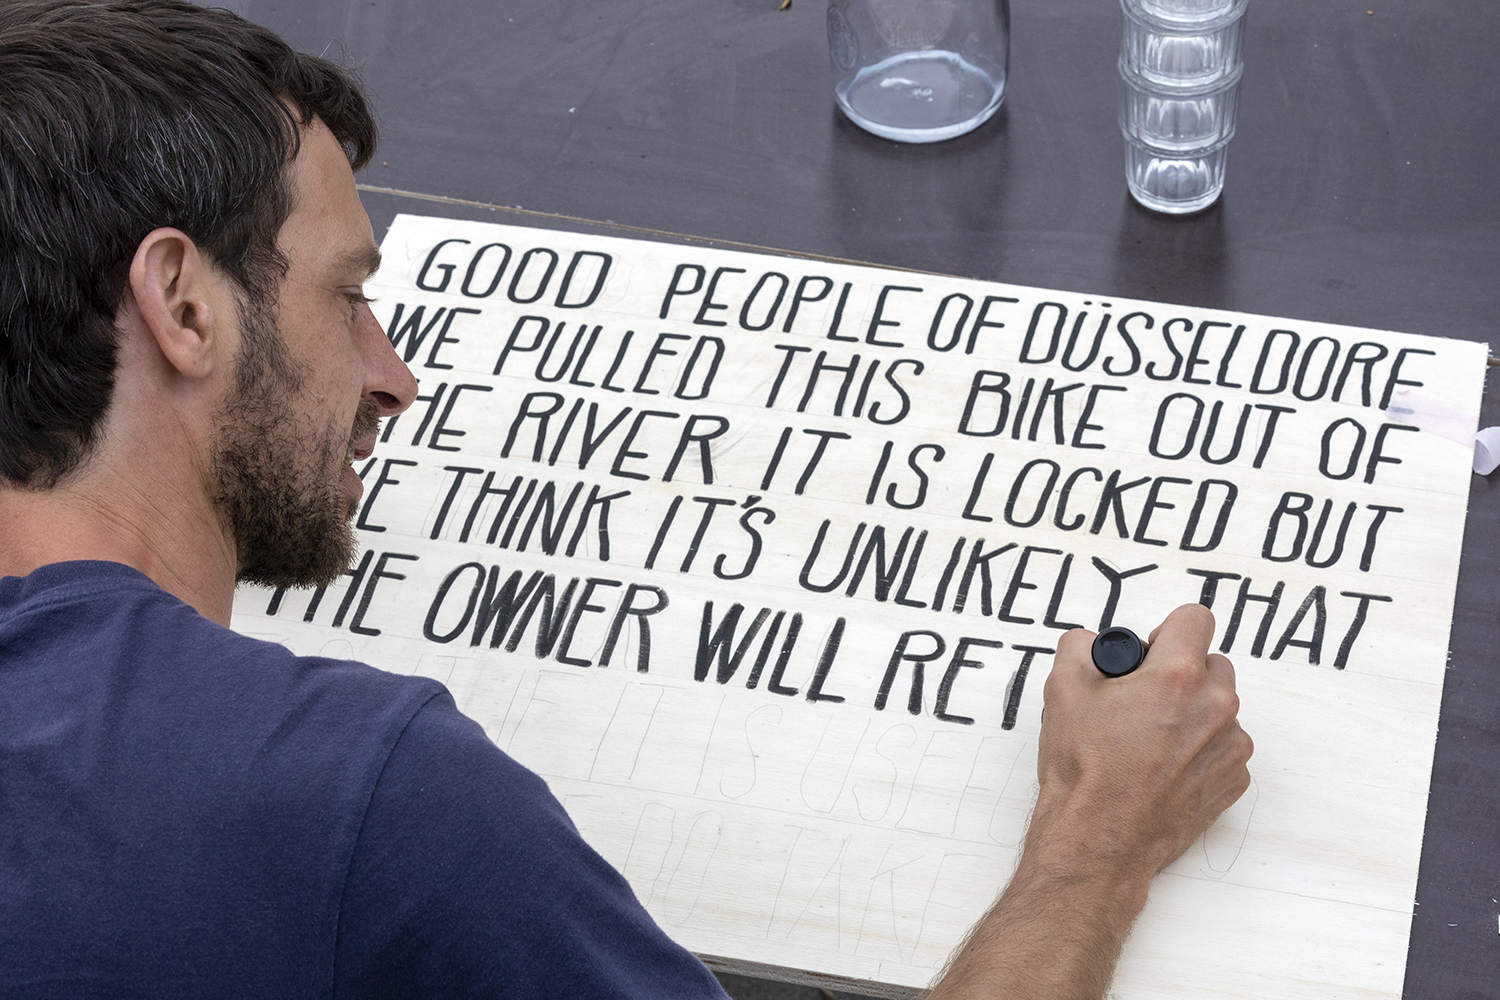 GOOD PEOPLE OF DÜSSELDORF
WE PULLED THIS BIKE OUT OF
THE RIVER IT IS LOCKED BUT
WE THINK IT'S UNLIKELY THAT
THE OWNER WILL RET
IT IF IT IS USEFUL
DO TAKE